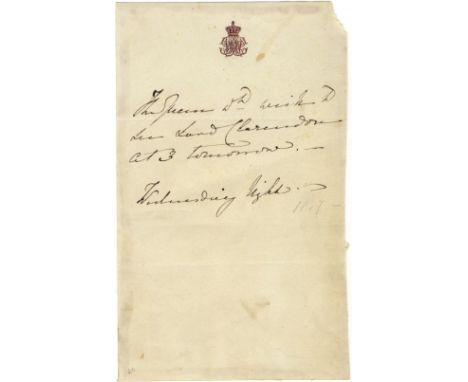 The Queen wd wish to
see Lord Clarendon
at 3 tomorrow. —
Wednesday Night. —